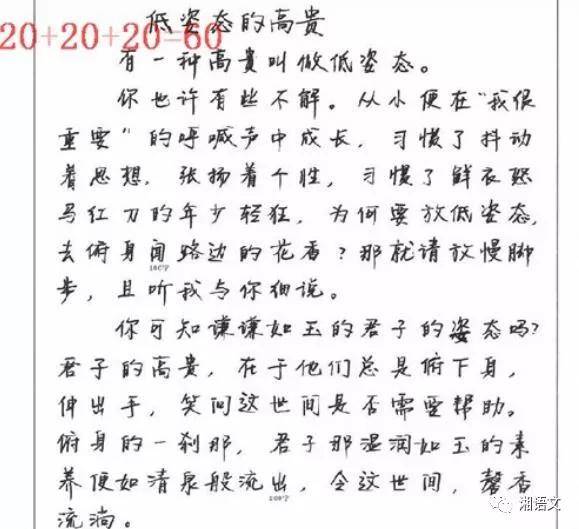 低姿态的高贵
20+20+20=60
有一种高贵叫做低姿态。
你也许有些不解。从小便在“我很
重要”的呼喊声中成长，习惯了抖动
着思想，张扬着个性，习惯了鲜衣怒
马红刀的年少轻狂，为何要放低姿态，
去俯身闻路边的花香？那就请放慢脚
100字
步，且听我与你细说。
你可知谦谦如玉的君子的姿态吗？
君子的高贵，在于他们总是俯下身，
伸出手，笑问这世间是否需要帮助。
俯身的一刹那，君子那温润如玉的素
养便如清泉般流出，令这世间，馨香
200字
流淌。
湘语文